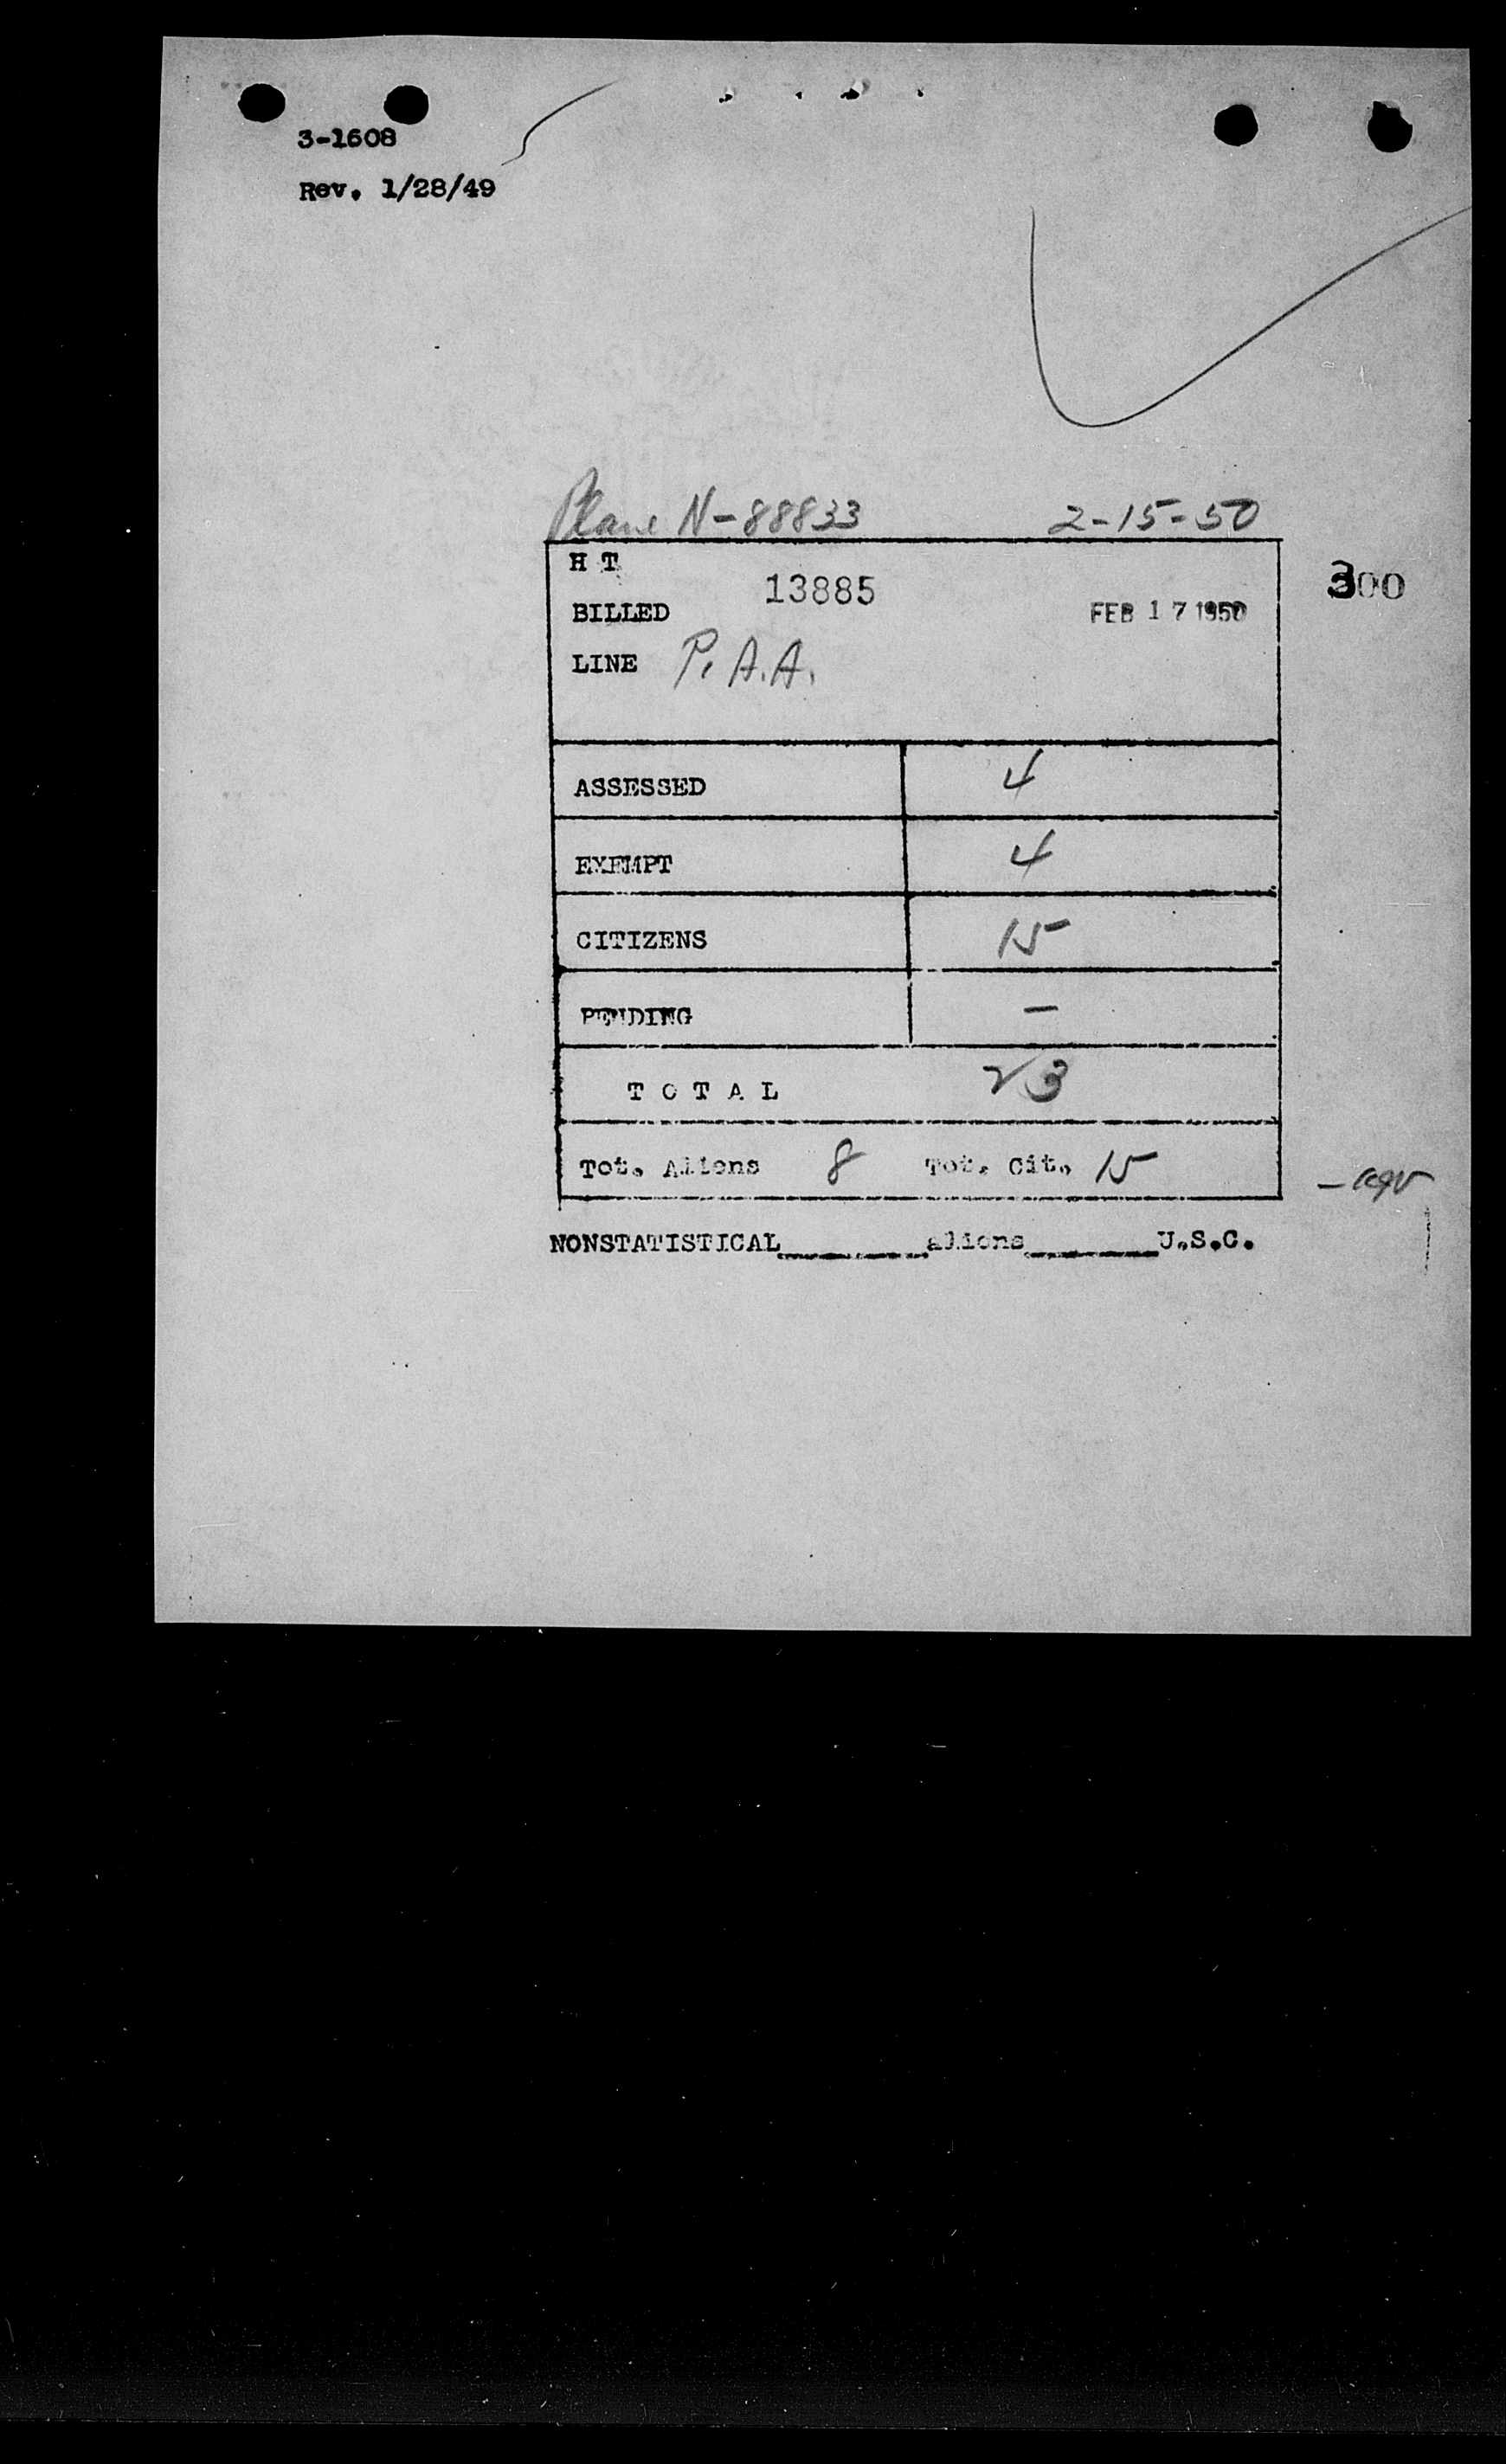 3-1608
Rev. 1/28/49
Plane N-88833 2-15-50
H T
13885
300
BILLED FEB 17 1950
LINE P.A.A.
ASSESSED 4
EXEMPT 4
CITIZENS 15
PENDING –
TOTAL 23
Tot. Aliens 8 Tot. Cit. 15
NONSTATISTICAL________aliens________U.S.C.